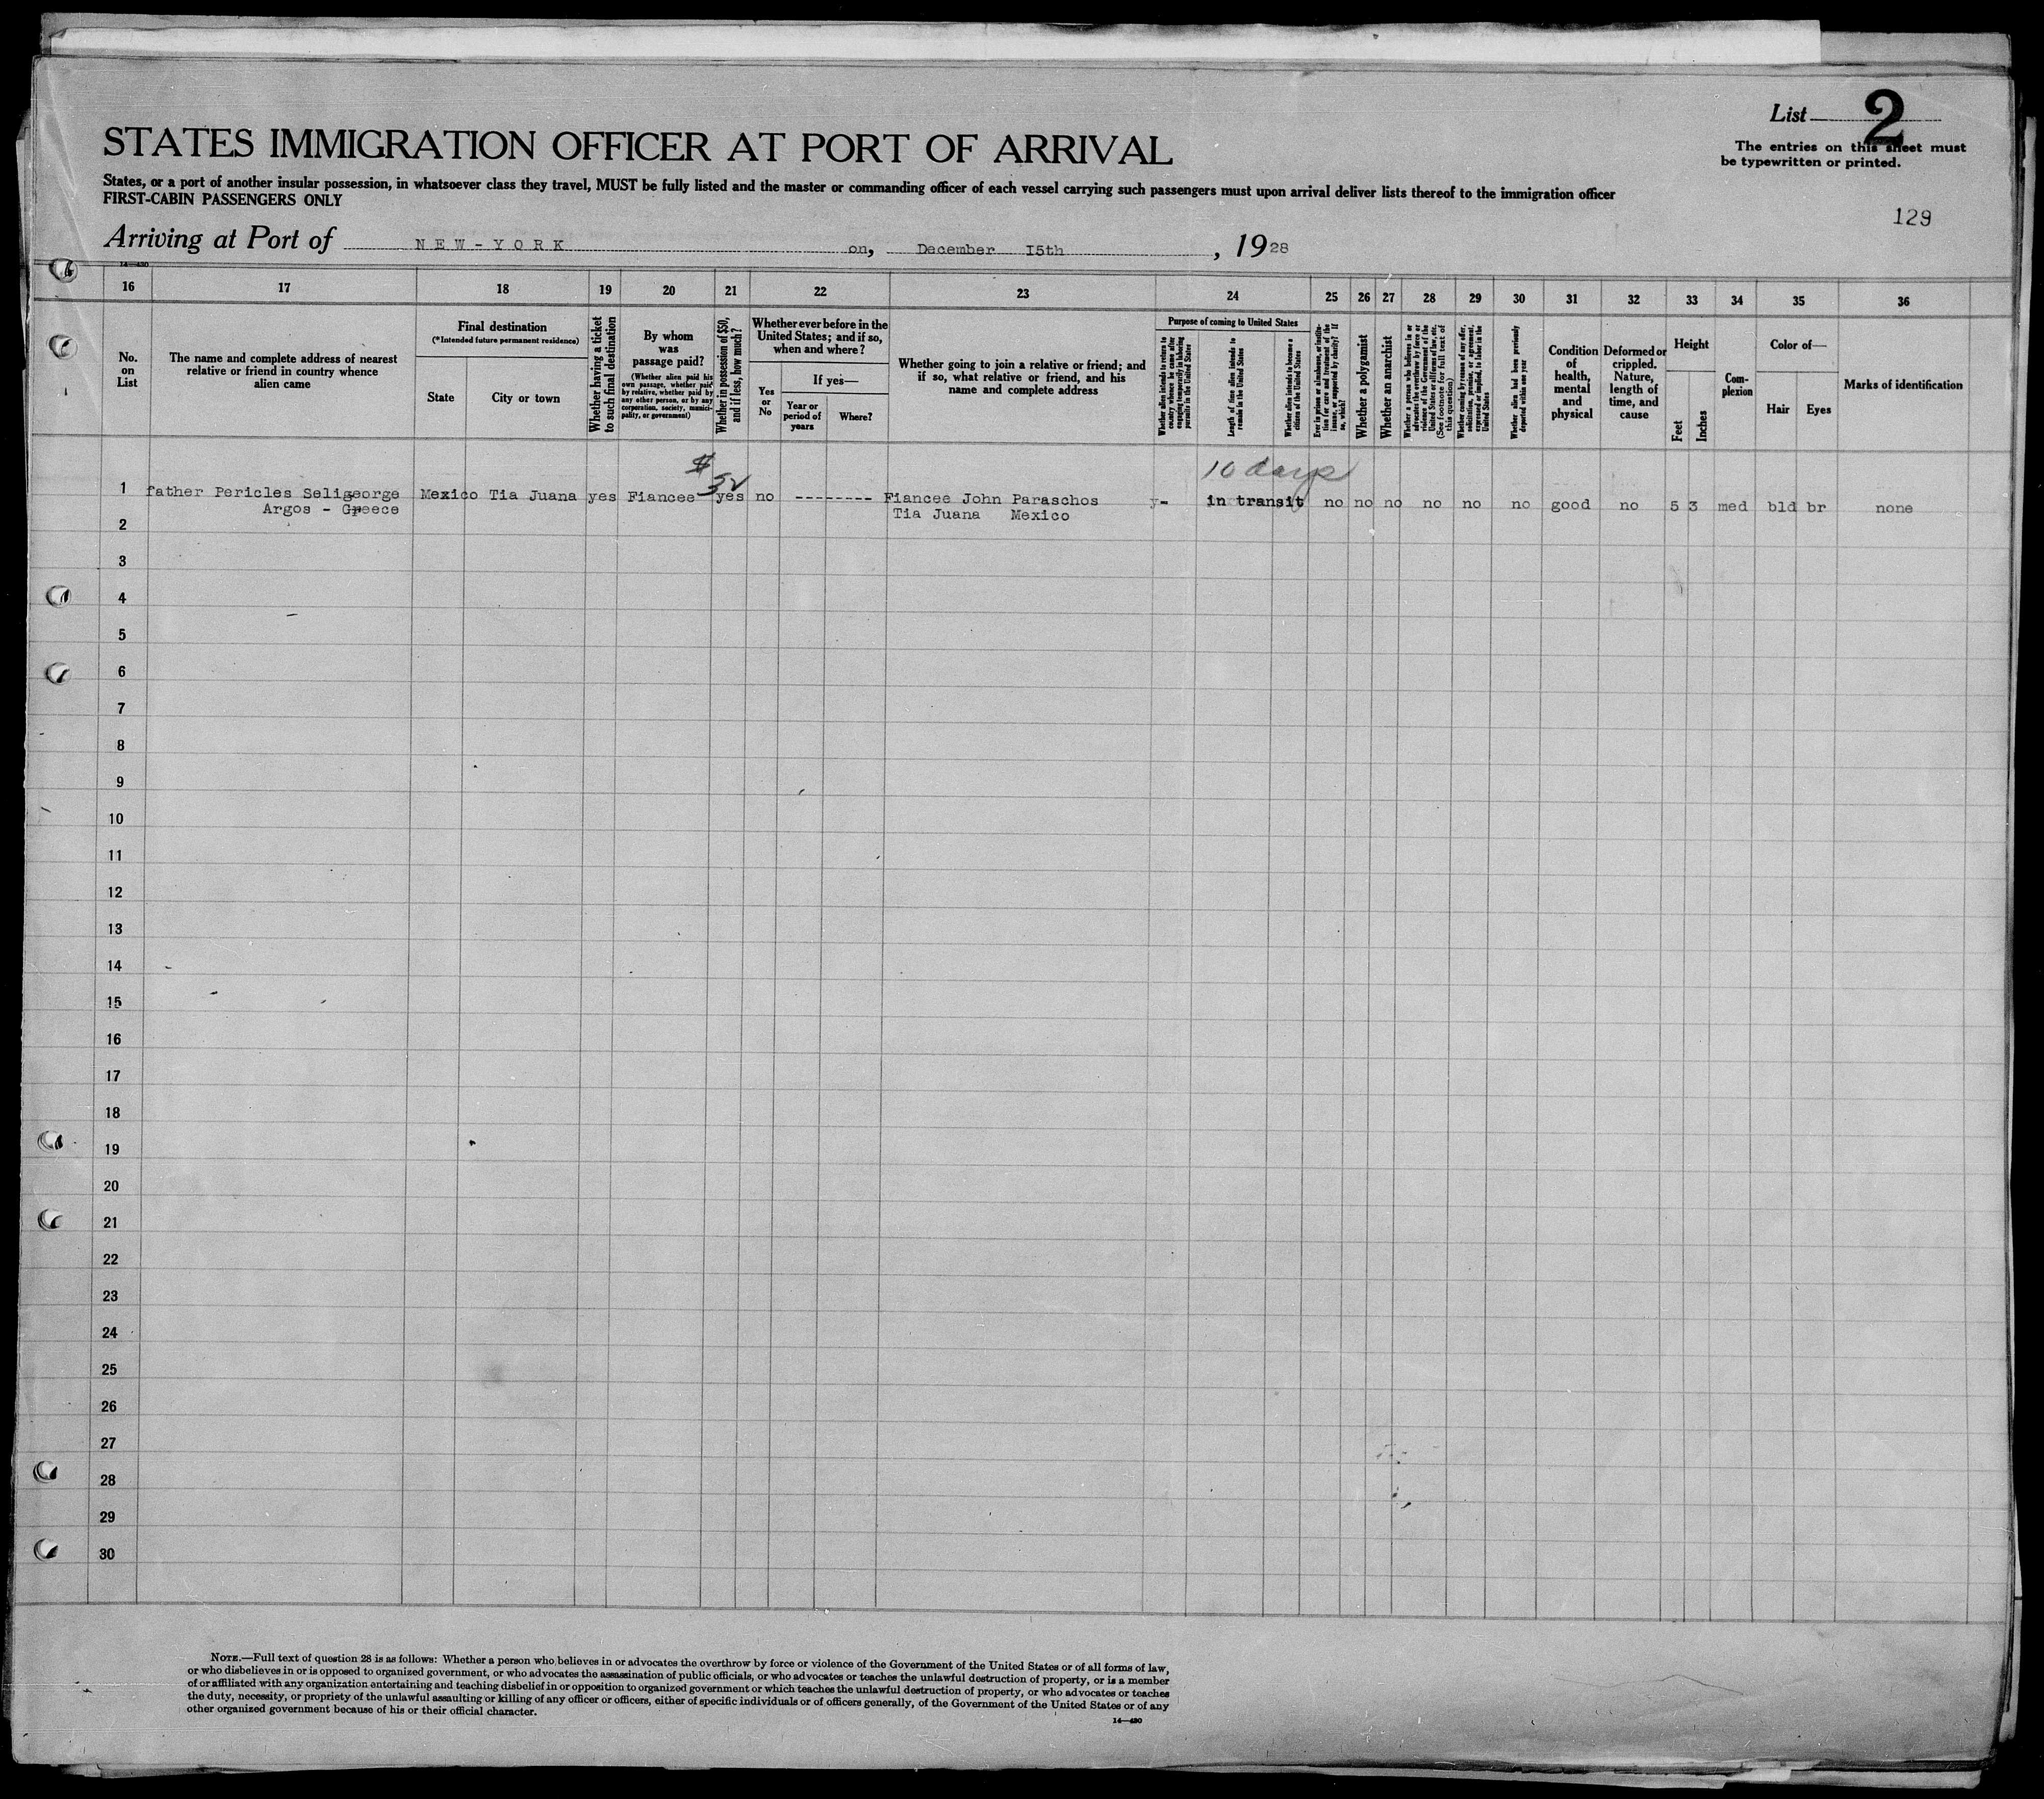 List 2
STATES IMMIGRATION OFFICER AT PORT OF ARRIVAL
The entries on this sheet must
be typewritten or printed.
States, or a port of another insular possession, in whatsoever class they travel, MUST be fully listed and the master or commanding officer of each vessel carrying such passengers must upon arrival deliver lists thereof to the immigration officer
FIRST-CABIN PASSENGERS ONLY
129
Arriving at Port of NEW-YORK on, December I5th, 1928
14—430
16 17 18 19 20 21 22 23 24 25 26 27 28 29 30 31 32 33 34 35 36
No. on List
The name and complete address of nearest relative or friend in country whence alien came
Final destination
(*Intended future permanent residence)
State
City or town
Whether having a ticket to such final destination
By whom was passage paid?
(Whether alien paid his own passage, whether paid by relative, whether paid by any other person, or by any corporation, society, municipality, or government)
Whether in possession of $50, and if less, how much?
Whether ever before in the United States; and if so, when and where?
Yes or No
If yes—
Year or period of years
Where?
Whether going to join a relative or friend; and if so, what relative or friend, and his name and complete address
Purpose of coming to United States
Whether alien intends to return to country whence he came after engaging temporarily in laboring pursuits in the United States
Length of time alien intends to remain in the United States
Whether alien intends to become a citizen of the United States
Ever in prison or almshouse, or institution for care and treatment of the insane, or supported by charity? If so, which?
Whether a polygamist
Whether an anarchist
Whether a person who believes in or advocates the overthrow by force or violence of the Government of the United States or all forms of law, etc. (See footnote for full text of this question)
Whether coming by reason of any offer, solicitation, promise, or agreement, expressed or implied, to labor in the United States
Whether alien had been previously deported within one year
Condition of health, mental and physical
Deformed or crippled. Nature, length of time, and cause
Height
Feet
Inches
Complexion
Color of—
Hair
Eyes
Marks of identification
$ 52
10 days
1 father Pericles Seligeorge Mexico Tia Juana yes Fiancee yes no -------- Fiancee John Paraschos y- in transit no no no no no no good no 5 3 med bld br none
Argos - Greece Tia Juana Mexico
2
3
4
5
6
7
8
9
10
11
12
13
14
15
16
17
18
19
20
21
22
23
24
25
26
27
28
29
30
NOTE.—Full text of question 28 is as follows: Whether a person who believes in or advocates the overthrow by force or violence of the Government of the United States or of all forms of law,
or who disbelieves in or is opposed to organized government, or who advocates the assassination of public officials, or who advocates or teaches the unlawful destruction of property, or is a member
of or affiliated with any organization entertaining and teaching disbelief in or opposition to organized government or which teaches the unlawful destruction of property, or who advocates or teaches
the duty, necessity, or propriety of the unlawful assaulting or killing of any officer or officers, either of specific individuals or of officers generally, of the Government of the United States or of any
other organized government because of his or their official character.
14—430